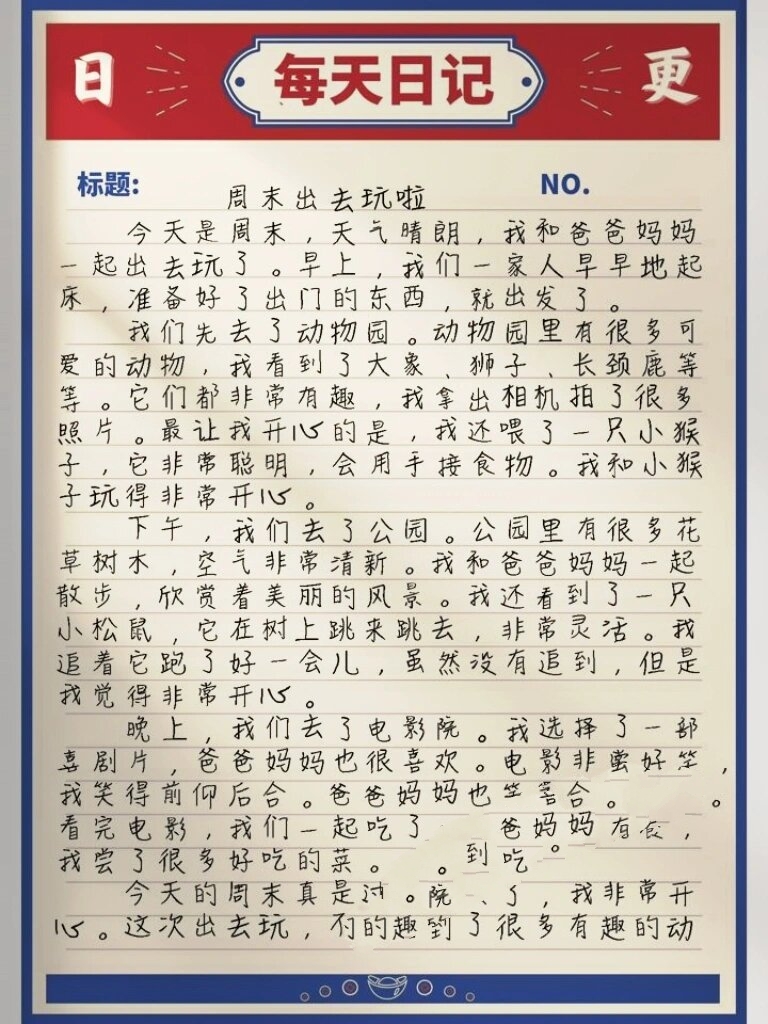 日 每天日记 更
标题: 周末出去玩啦 NO.
今天是周末，天气晴朗，我和爸爸妈妈
一起出去玩了。早上，我们一家人早早地起
床，准备好了出门的东西，就出发了。
我们先去了动物园。动物园里有很多可
爱的动物，我看到了大象、狮子、长颈鹿等
等。它们都非常有趣，我拿出相机拍了很多
照片。最让我开心的是，我还喂了一只小猴
子，它非常聪明，会用手接食物。我和小猴
子玩得非常开心。
下午，我们去了公园。公园里有很多花
草树木，空气非常清新。我和爸爸妈妈一起
散步，欣赏着美丽的风景。我还看到了一只
小松鼠，它在树上跳来跳去，非常灵活。我
追着它跑了好一会儿，虽然没有追到，但是
我觉得非常开心。
晚上，我们去了电影院。我选择了一部
喜剧片，爸爸妈妈也很喜欢。电影非常好，
我笑得前仰后合。爸爸妈妈也合。。
看完电影，我们一起吃了 爸妈妈有，
我尝了很多好吃的菜。。到吃。
今天的周末真是。院、，我非常开
心。这次出去玩，的趣到了很多有趣的动